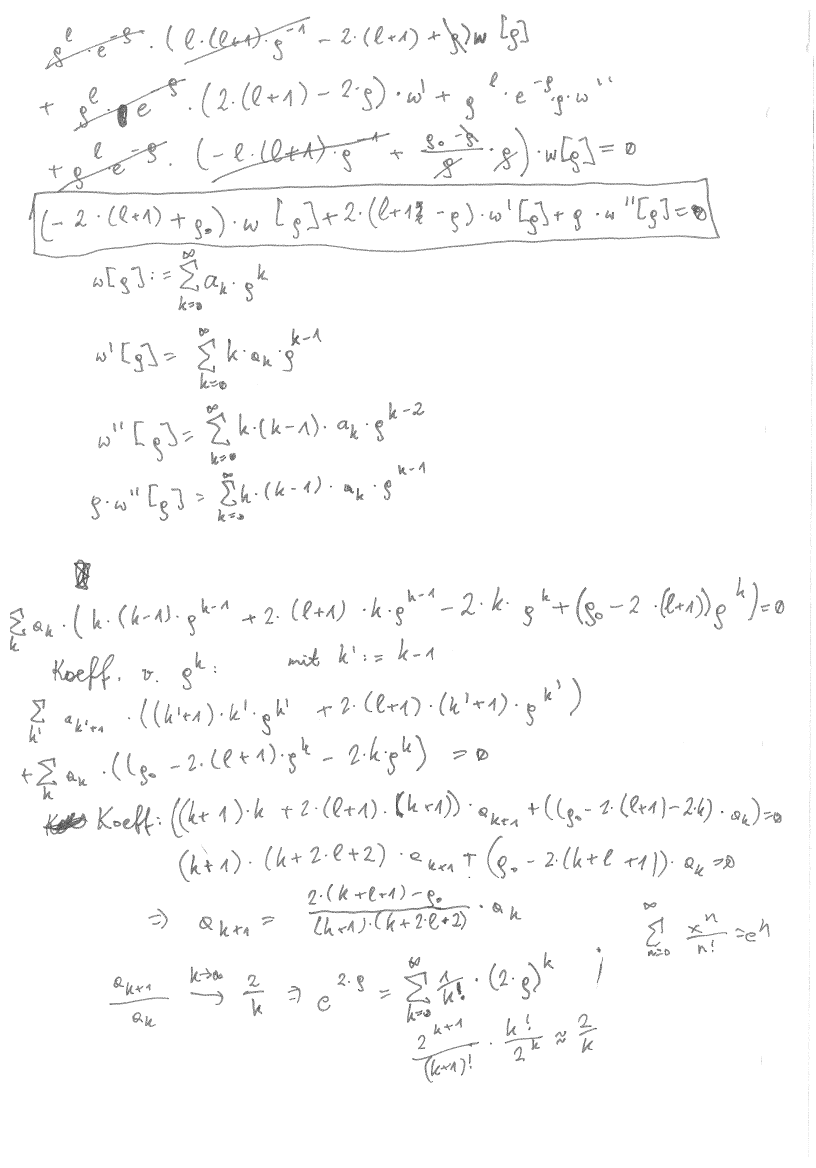 ρ^l · e^-ρ · (l·(l+1)·ρ^-1 - 2·(l+1) + ρ) w [ρ]
+ ρ^l · e^-ρ · (2·(l+1) - 2·ρ) · w' + ρ^l · e^-ρ · ρ · w''
+ ρ^l · e^-ρ · (-l·(l+1)·ρ^-1 + (ρ₀-ρ)/ρ · ρ) · w[ρ] = 0
(-2·(l+1) + ρ₀) · w [ρ] + 2·(l+1 - ρ) · w'[ρ] + ρ · w''[ρ] = 0
w[ρ] := ∑_{k=0}^∞ a_k · ρ^k
w'[ρ] = ∑_{k=0}^∞ k · a_k · ρ^{k-1}
w''[ρ] = ∑_{k=0}^∞ k·(k-1) · a_k · ρ^{k-2}
ρ·w''[ρ] = ∑_{k=0}^∞ k·(k-1) · a_k · ρ^{k-1}
∑_k a_k · (k·(k-1)·ρ^{k-1} + 2·(l+1)·k·ρ^{k-1} - 2·k·ρ^k + (ρ₀ - 2·(l+1))ρ^k) = 0
Koeff. v. ρ^k: mit k' := k-1
∑_{k'} a_{k'+1} · ((k'+1)·k'·ρ^{k'} + 2·(l+1)·(k'+1)·ρ^{k'})
+ ∑_k a_k · ((ρ₀ - 2·(l+1)·ρ^k - 2·k·ρ^k) = 0
Koeff: ((k+1)·k + 2·(l+1)·(k+1)) · a_{k+1} + ((ρ₀ - 2·(l+1) - 2k) · a_k) = 0
(k+1)·(k+2·l+2) · a_{k+1} + (ρ₀ - 2·(k+l+1)) · a_k = 0
⇒ a_{k+1} = (2·(k+l+1) - ρ₀)/((k+1)·(k+2·l+2)) · a_k
a_{k+1}/a_k →^{k→∞} 2/k ⇒ e^{2·ρ} = ∑_{k=0}^∞ 1/k! · (2·ρ)^k ; ∑_{n=0}^∞ x^n/n! = e^n
2^{k+1}/(k+1)! · k!/2^k ≈ 2/k